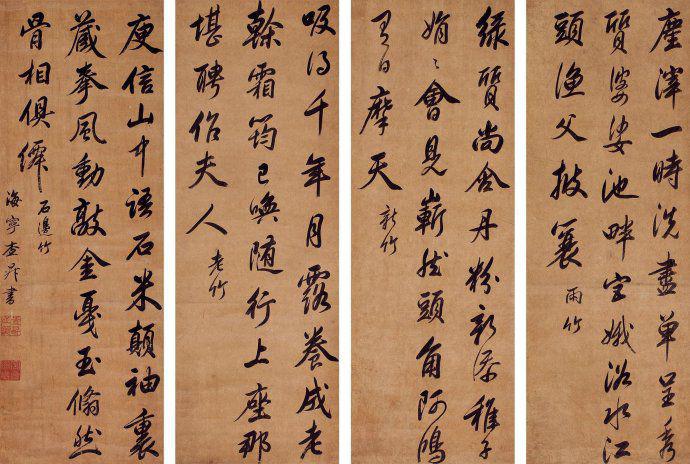 塵滓一時洗盡單呈秀
質婆娑池畔宓娥浴水江
頭漁父披蓑 雨竹
綠質尚含丹粉新添稚子
娟〻會見嶄然頭角阿
有日摩天 新竹
吸得千年月露養成老
榦霜筠已喚隨行上座那
堪聘夫人 老竹
庾信山中語石米顛袖裏
藏拳風動敲金戛玉翛然
骨相俱 石邊竹
海寧查昇書